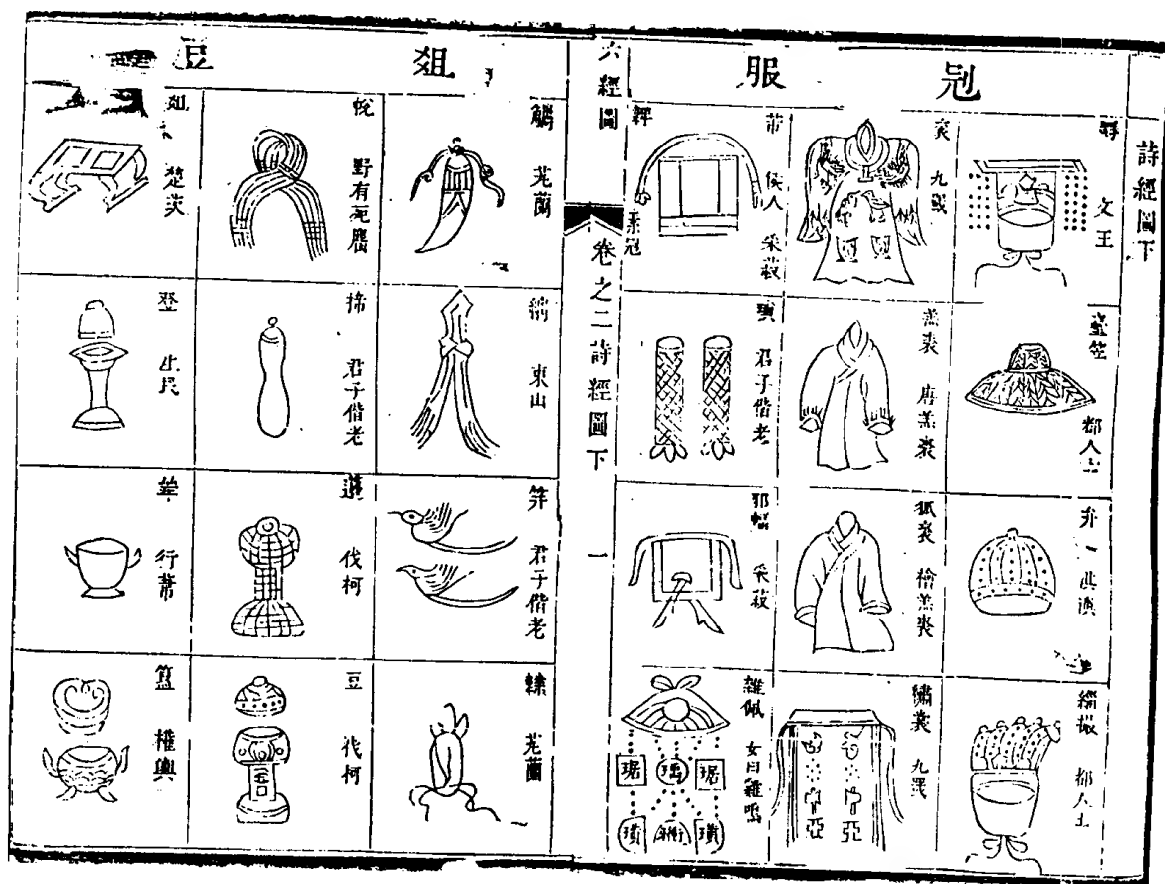 詩經圖下
冠服
冔 文王
臺笠 都人士
弁 淇澳
緇撮 都人士
衮 九罭
羔裘 唐羔裘
狐裘 檜羔裘
繡裳 九罭
芾 侯人 采菽
韠 素冠
瑱 君子偕老
邪幅 采菽
雜佩 女曰雞鳴
琚 瑀 琚
璜 衝 璜
六經圖
卷之二詩經圖下
一
俎豆
觿 芄蘭
縭 東山
笄 君子偕老
韘 芄蘭
帨 野有死麕
揥 君子偕老
籩 伐柯
豆 伐柯
俎 楚茨
登 生民
斝 行葦
簋 權輿